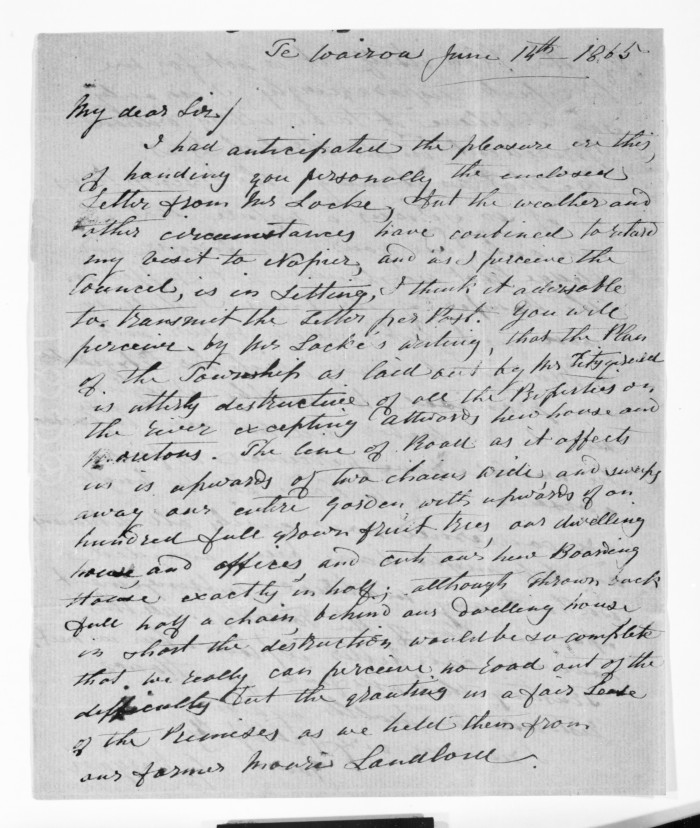 Te Wairoa June 14th 1865
My dear Sir/
I had anticipated the pleasure ere this,
of handing you personally the enclosed
Letter from Mr Locke, but the weather and
other circumstances have combined to retard
my visit to Napier, and as I perceive the
Council, is in Sitting, I think it adversable
to transmit the Letter per Post. You will
perceive by Mr Locke's writing, that the Plan
of the Township as laid out by Mr Fitzgerald
is utterly destructive of all the Properties on
the river excepting Attwoods new house and
. The line of Road as it affects
us is upwards of two chains wide and sweeps
away our entire garden with upwards of an
hundred full grown fruit trees, our dwelling
house and offices and cuts our new Boarding
House exactly in half; although thrown back
full half a chain, behind our dwelling house
in short the destruction would be so complete
that we really can perceive no road out of the
difficulty but the granting us a fair Lease
of the Premises as we held them from
our former Maori Landlord.